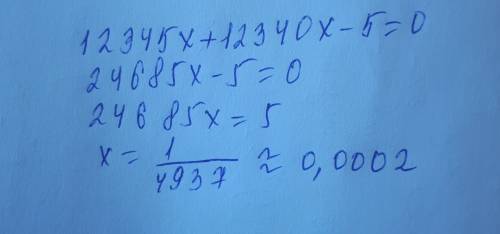 12345x+12340x-5=0
24685x-5=0
24685x=5
x=1/4937≈0,0002